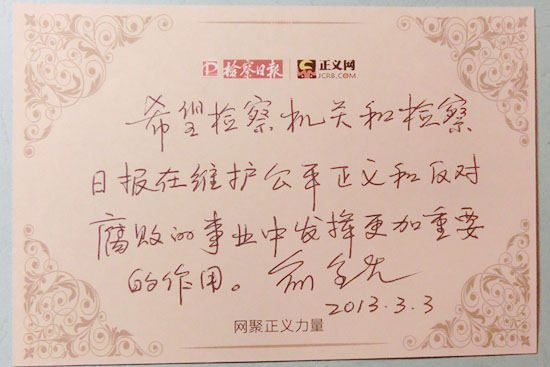 检察日报 正义网
JCRB.COM
希望检察机关和检察
日报在维护公平正义和反对
腐败的事业中发挥更加重要
的作用。
2013.3.3
网聚正义力量